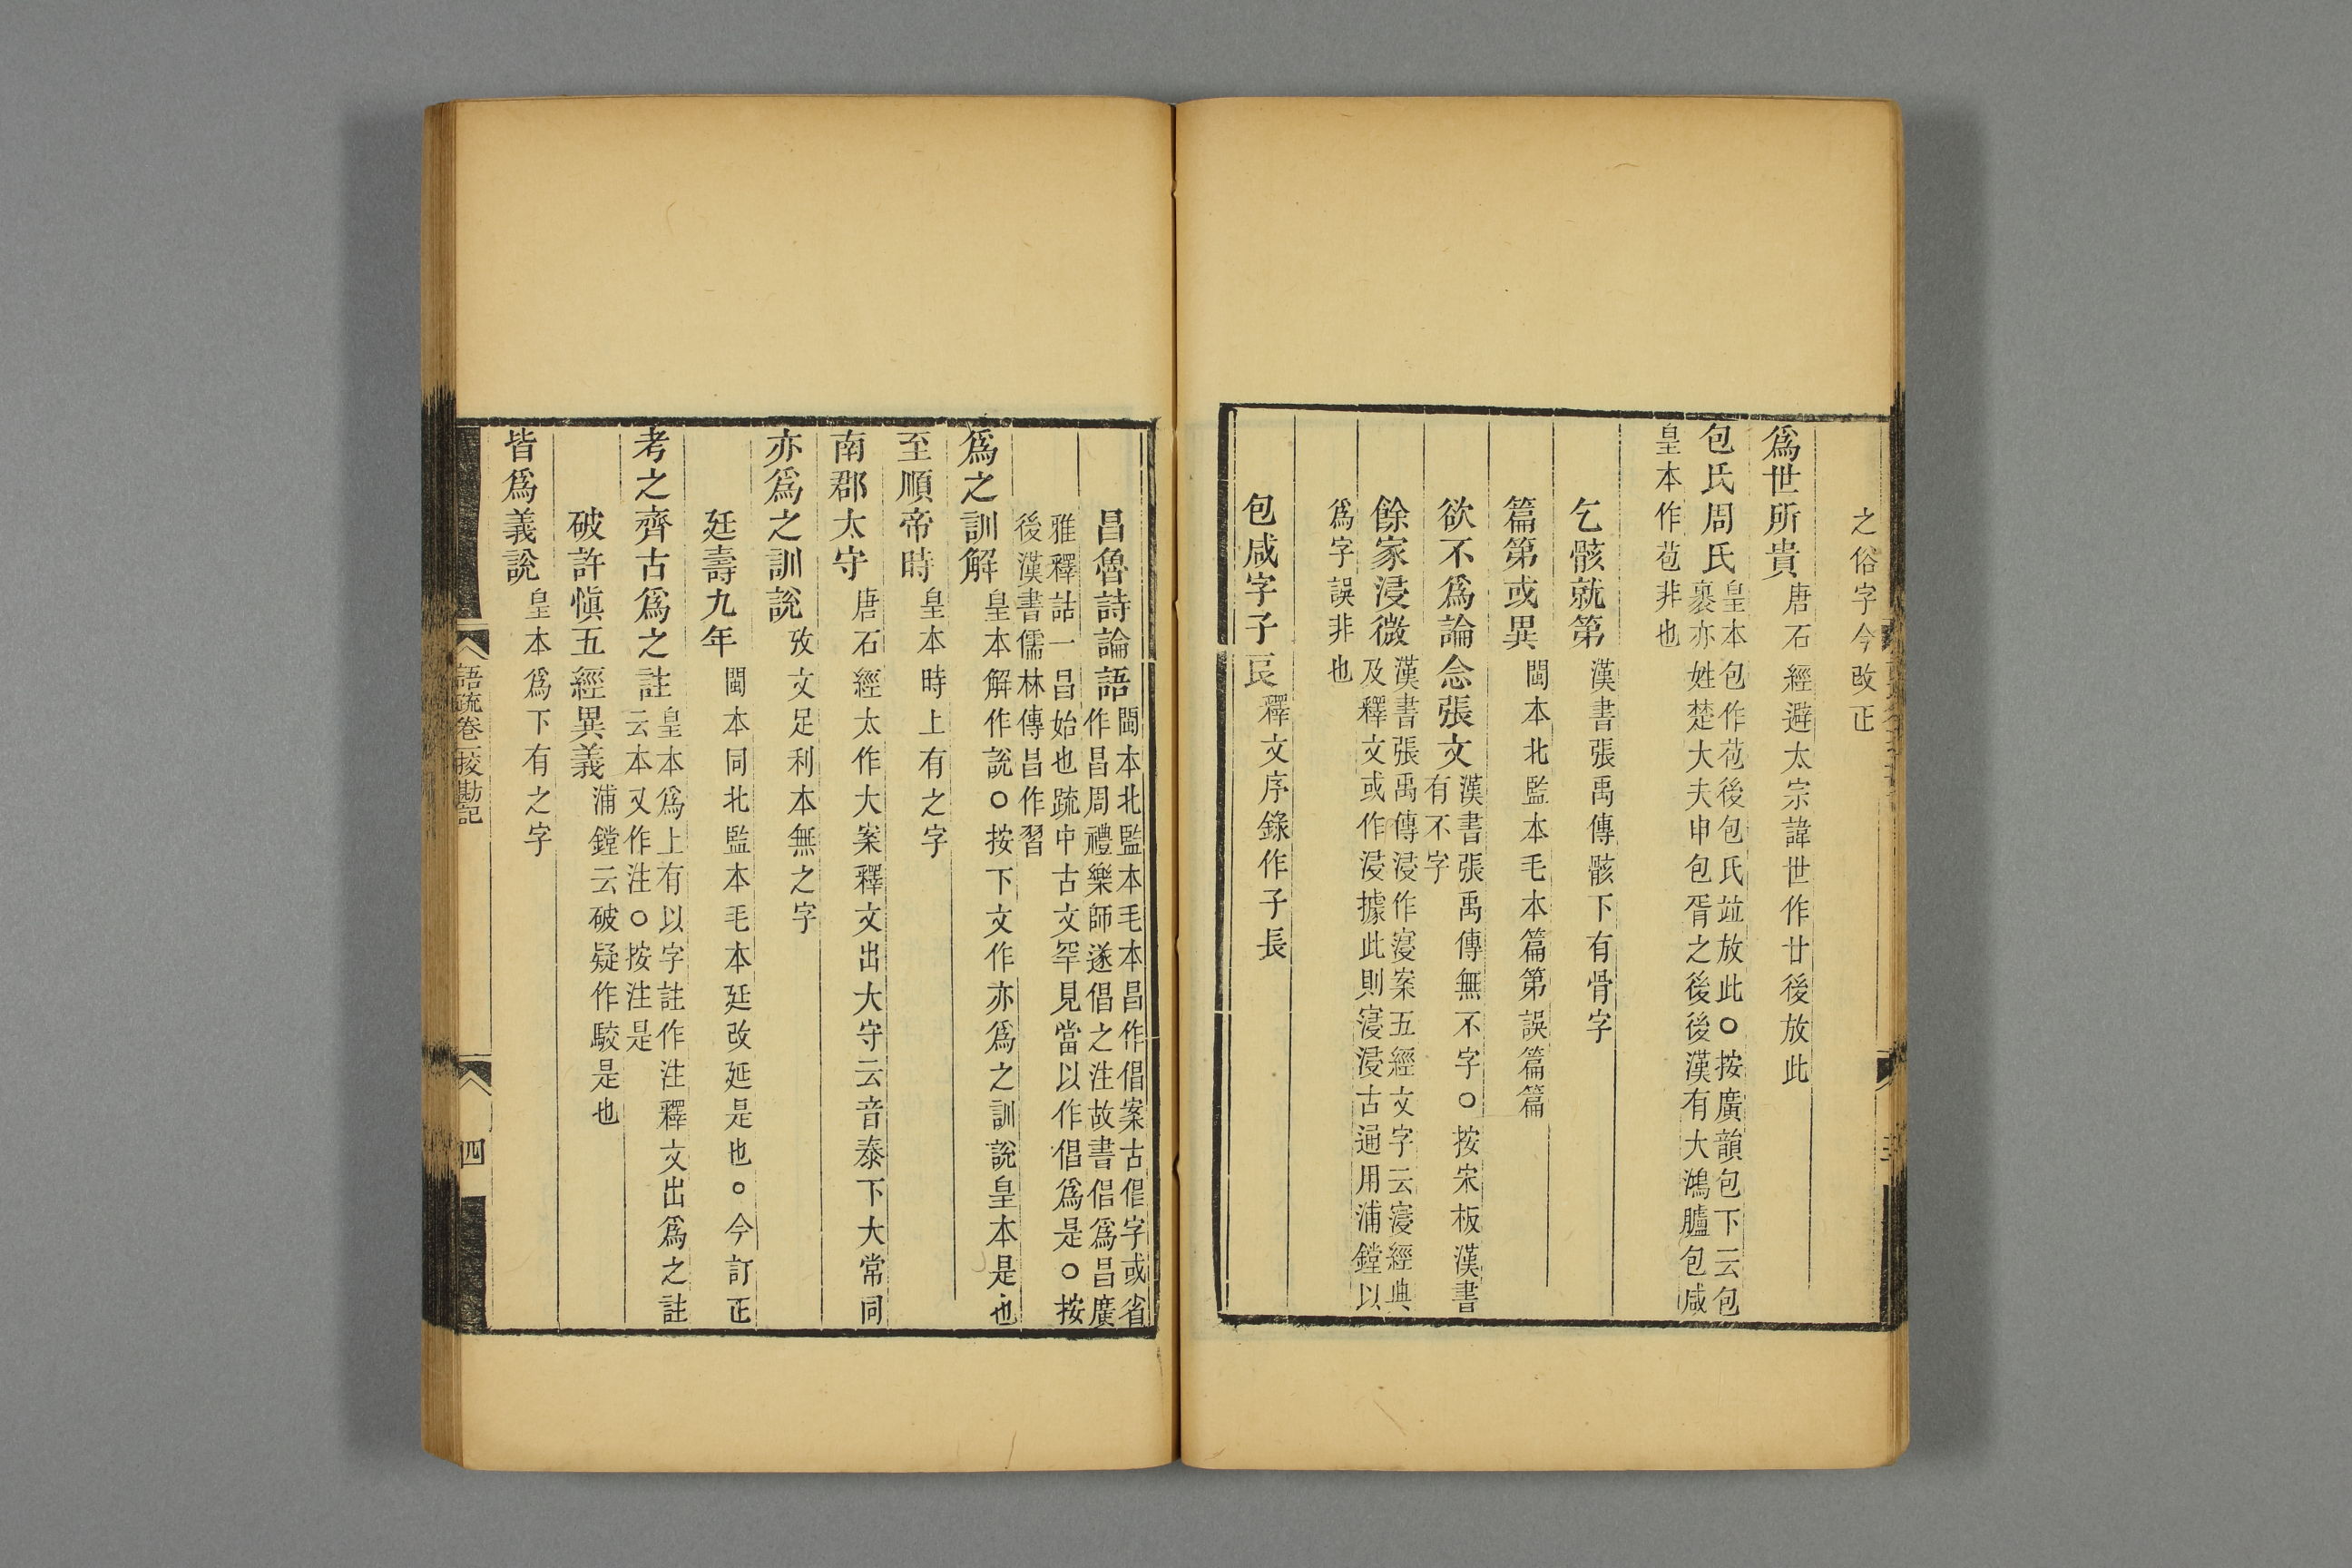 之俗字今改正
爲世所貴唐石經避太宗諱世作廿後放此
包氏周氏皇本包作苞後包氏竝放此○按廣韻包下云包
裹亦姓楚大夫申包胥之後後漢有大鴻臚包咸
皇本作苞非也
乞骸就第漢書張禹傳骸下有骨字
篇第或異閩本北監本毛本篇第誤篇篇
欲不爲論念張文漢書張禹傳無不字○按宋板漢書
有不字
餘家浸微漢書張禹傳浸作寖案五經文字云寖經典
及釋文或作浸據此則寖浸古通用浦鏜以
爲字誤非也
包咸字子良釋文序錄作子長
昌魯詩論語閩本北監本毛本昌作倡案古倡字或省
作昌周禮樂師遂倡之注故書倡爲昌廣
雅釋詁一昌始也疏中古文罕見當以作倡爲是○按
後漢書儒林傳昌作習
爲之訓解皇本解作說○按下文作亦爲之訓說皇本是也
至順帝時皇本時上有之字
南郡太守唐石經太作大案釋文出大守云音泰下大常同
亦爲之訓說攷文足利本無之字
廷壽九年閩本同北監本毛本廷改延是也○今訂正
考之齊古爲之註皇本爲上有以字註作注釋文出爲之註
云本又作注○按注是
破許愼五經異義浦鏜云破疑作駮是也
皆爲義說皇本爲下有之字
語疏卷一挍勘記
四